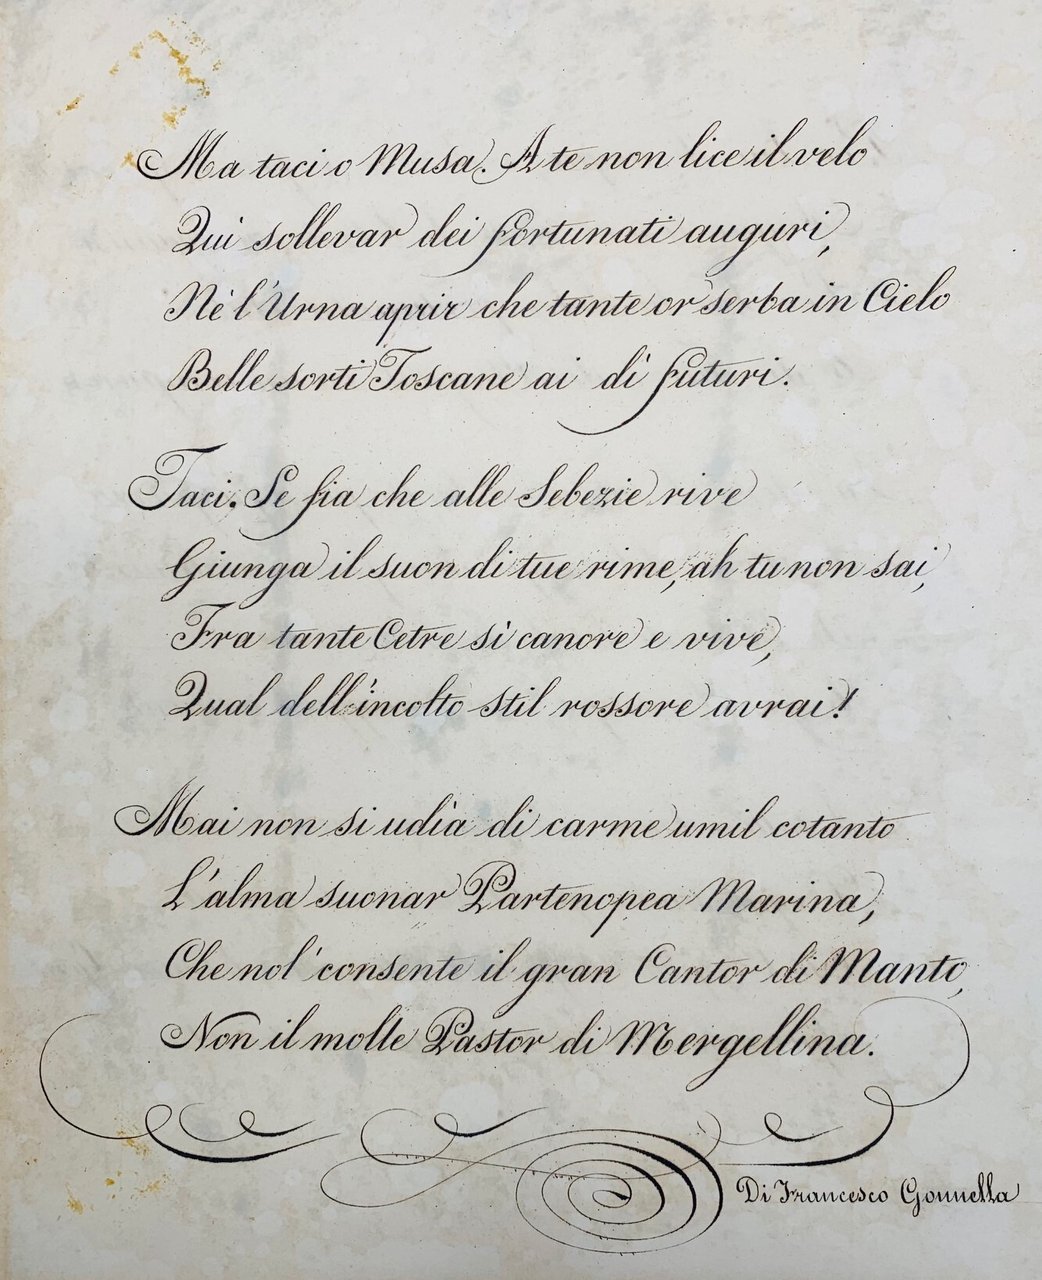 Ma taci o Musa. A te non lice il velo
Qui sollevar dei fortunati auguri,
Nè l'Urna aprir che tante or serba in Cielo
Belle sorti Toscane ai dì futuri.
Taci. Se fia che alle Sebezie rive
Giunga il suon di tue rime, ah tu non sai,
Fra tante Cetre sì canore e vive,
Qual dell'incolto stil rossore avrai!
Mai non si udìa di carme umil cotanto
L'alma suonar Partenopea Marina,
Che nol' consente il gran Cantor di Manto,
Non il molle Pastor di Mergellina.
Di Francesco Gonnella